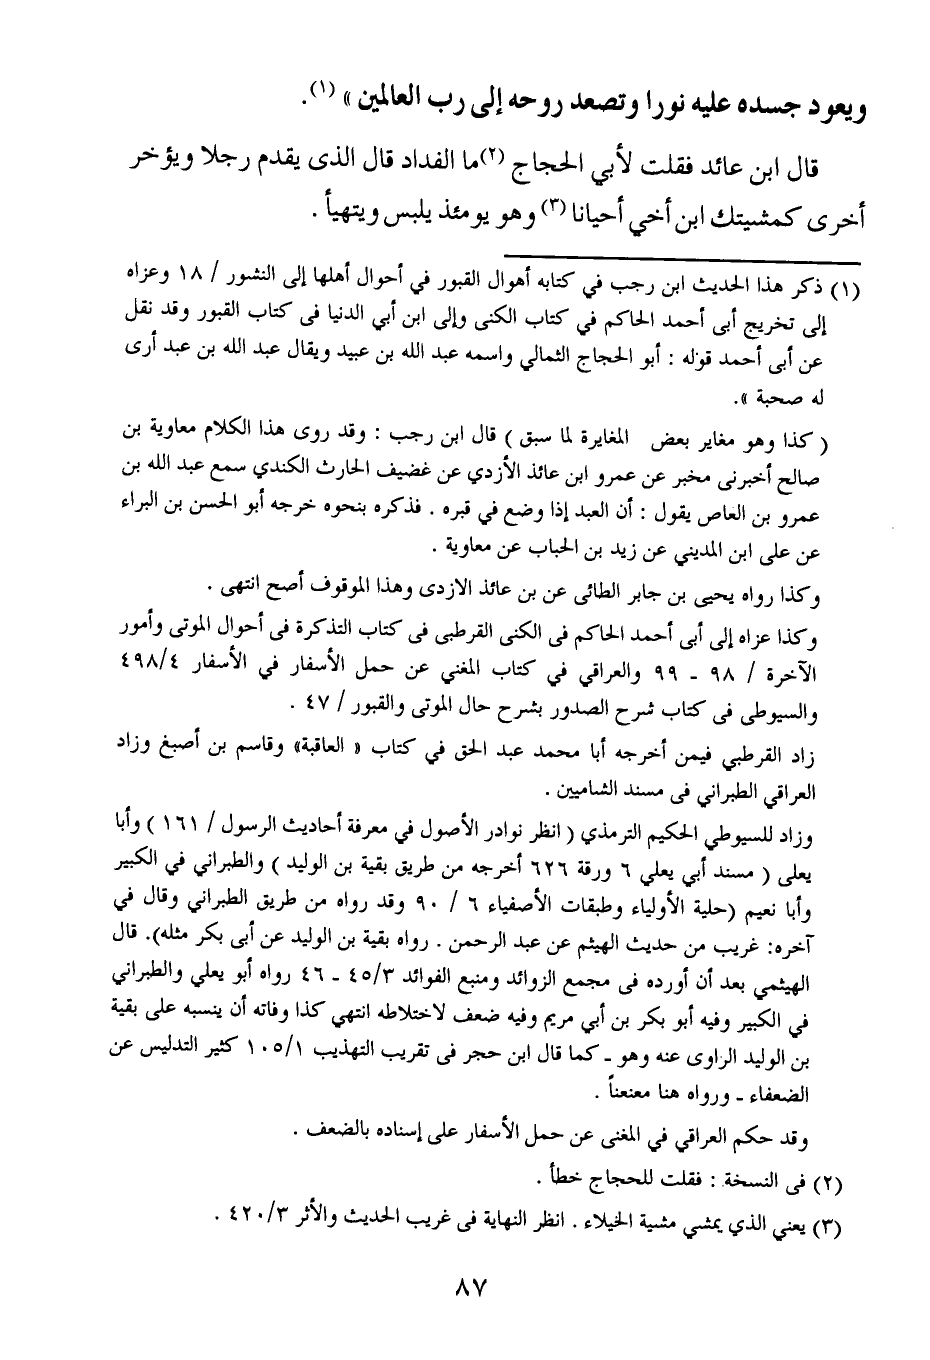 ويعود جسده عليه نورا وتصعد روحه إلى رب العالمين » (١).
قال ابن عائد فقلت لأبي الحجاج (٢) ما الفداد قال الذى يقدم رجلا ويؤخر
أخرى كمشيتك ابن أخي أحيانا (٣) وهو يومئذ يلبس ويتهيأ .
(١) ذكر هذا الحديث ابن رجب في كتابه أهوال القبور في أحوال أهلها إلى النشور / ١٨ وعزاه
إلى تخريج أبى أحمد الحاكم في كتاب الكنى وإلى ابن أبي الدنيا فى كتاب القبور وقد نقل
عن أبى أحمد قوله : أبو الحجاج الثمالي واسمه عبد الله بن عبيد ويقال عبد الله بن عبد أرى
له صحبة ».
( كذا وهو مغاير بعض المغايرة لما سبق ) قال ابن رجب : وقد روى هذا الكلام معاوية بن
صالح أخبرنى مخبر عن عمرو ابن عائذ الأزدي عن غضيف الحارث الكندي سمع عبد الله بن
عمرو بن العاص يقول : أن العبد إذا وضع في قبره . فذكره بنحوه خرجه أبو الحسن بن البراء
عن على ابن المديني عن زيد بن الحباب عن معاوية .
وكذا رواه يحيى بن جابر الطائى عن بن عائذ الازدى وهذا الموقوف أصح انتهى .
وكذا عزاه إلى أبى أحمد الحاكم فى الكنى القرطبى فى كتاب التذكرة فى أحوال الموتى وأمور
الآخرة / ٩٨ ـ ٩٩ والعراقي في كتاب المغني عن حمل الأسفار في الأسفار ٤٩٨/٤
والسيوطى فى كتاب شرح الصدور بشرح حال الموتى والقبور / ٤٧ .
زاد القرطبي فيمن أخرجه أبا محمد عبد الحق في كتاب « العاقبة» وقاسم بن أصبغ وزاد
العراقي الطبراني فى مسند الشاميين .
وزاد للسيوطي الحكيم الترمذي ( انظر نوادر الأصول في معرفة أحاديث الرسول / ١٦١ ) وأبا
يعلى ( مسند أبي يعلي ٦ ورقة ٦٢٦ أخرجه من طريق بقية بن الوليد ) والطبراني في الكبير
وأبا نعيم (حلية الأولياء وطبقات الأصفياء ٦ / ٩٠ وقد رواه من طريق الطبراني وقال في
آخره: غريب من حديث الهيثم عن عبد الرحمن . رواه بقية بن الوليد عن أبى بكر مثله). قال
الهيثمي بعد أن أورده فى مجمع الزوائد ومنبع الفوائد ٤٥/٣ ـ ٤٦ رواه أبو يعلي والطبراني
في الكبير وفيه أبو بكر بن أبي مريم وفيه ضعف لاختلاطه انتهي كذا وفاته أن ينسبه على بقية
بن الوليد الراوى عنه وهو ـ كما قال ابن حجر فى تقريب التهذيب ١٠٥/١ كثير التدليس عن
الضعفاء ـ ورواه هنا معنعناً .
وقد حكم العراقي في المغنى عن حمل الأسفار على إسناده بالضعف .
(٢) فى النسخة : فقلت للحجاج خطأ .
(٣) يعني الذي يمشي مشية الخيلاء . انظر النهاية فى غريب الحديث والأثر ٤٢٠/٣ .
٨٧